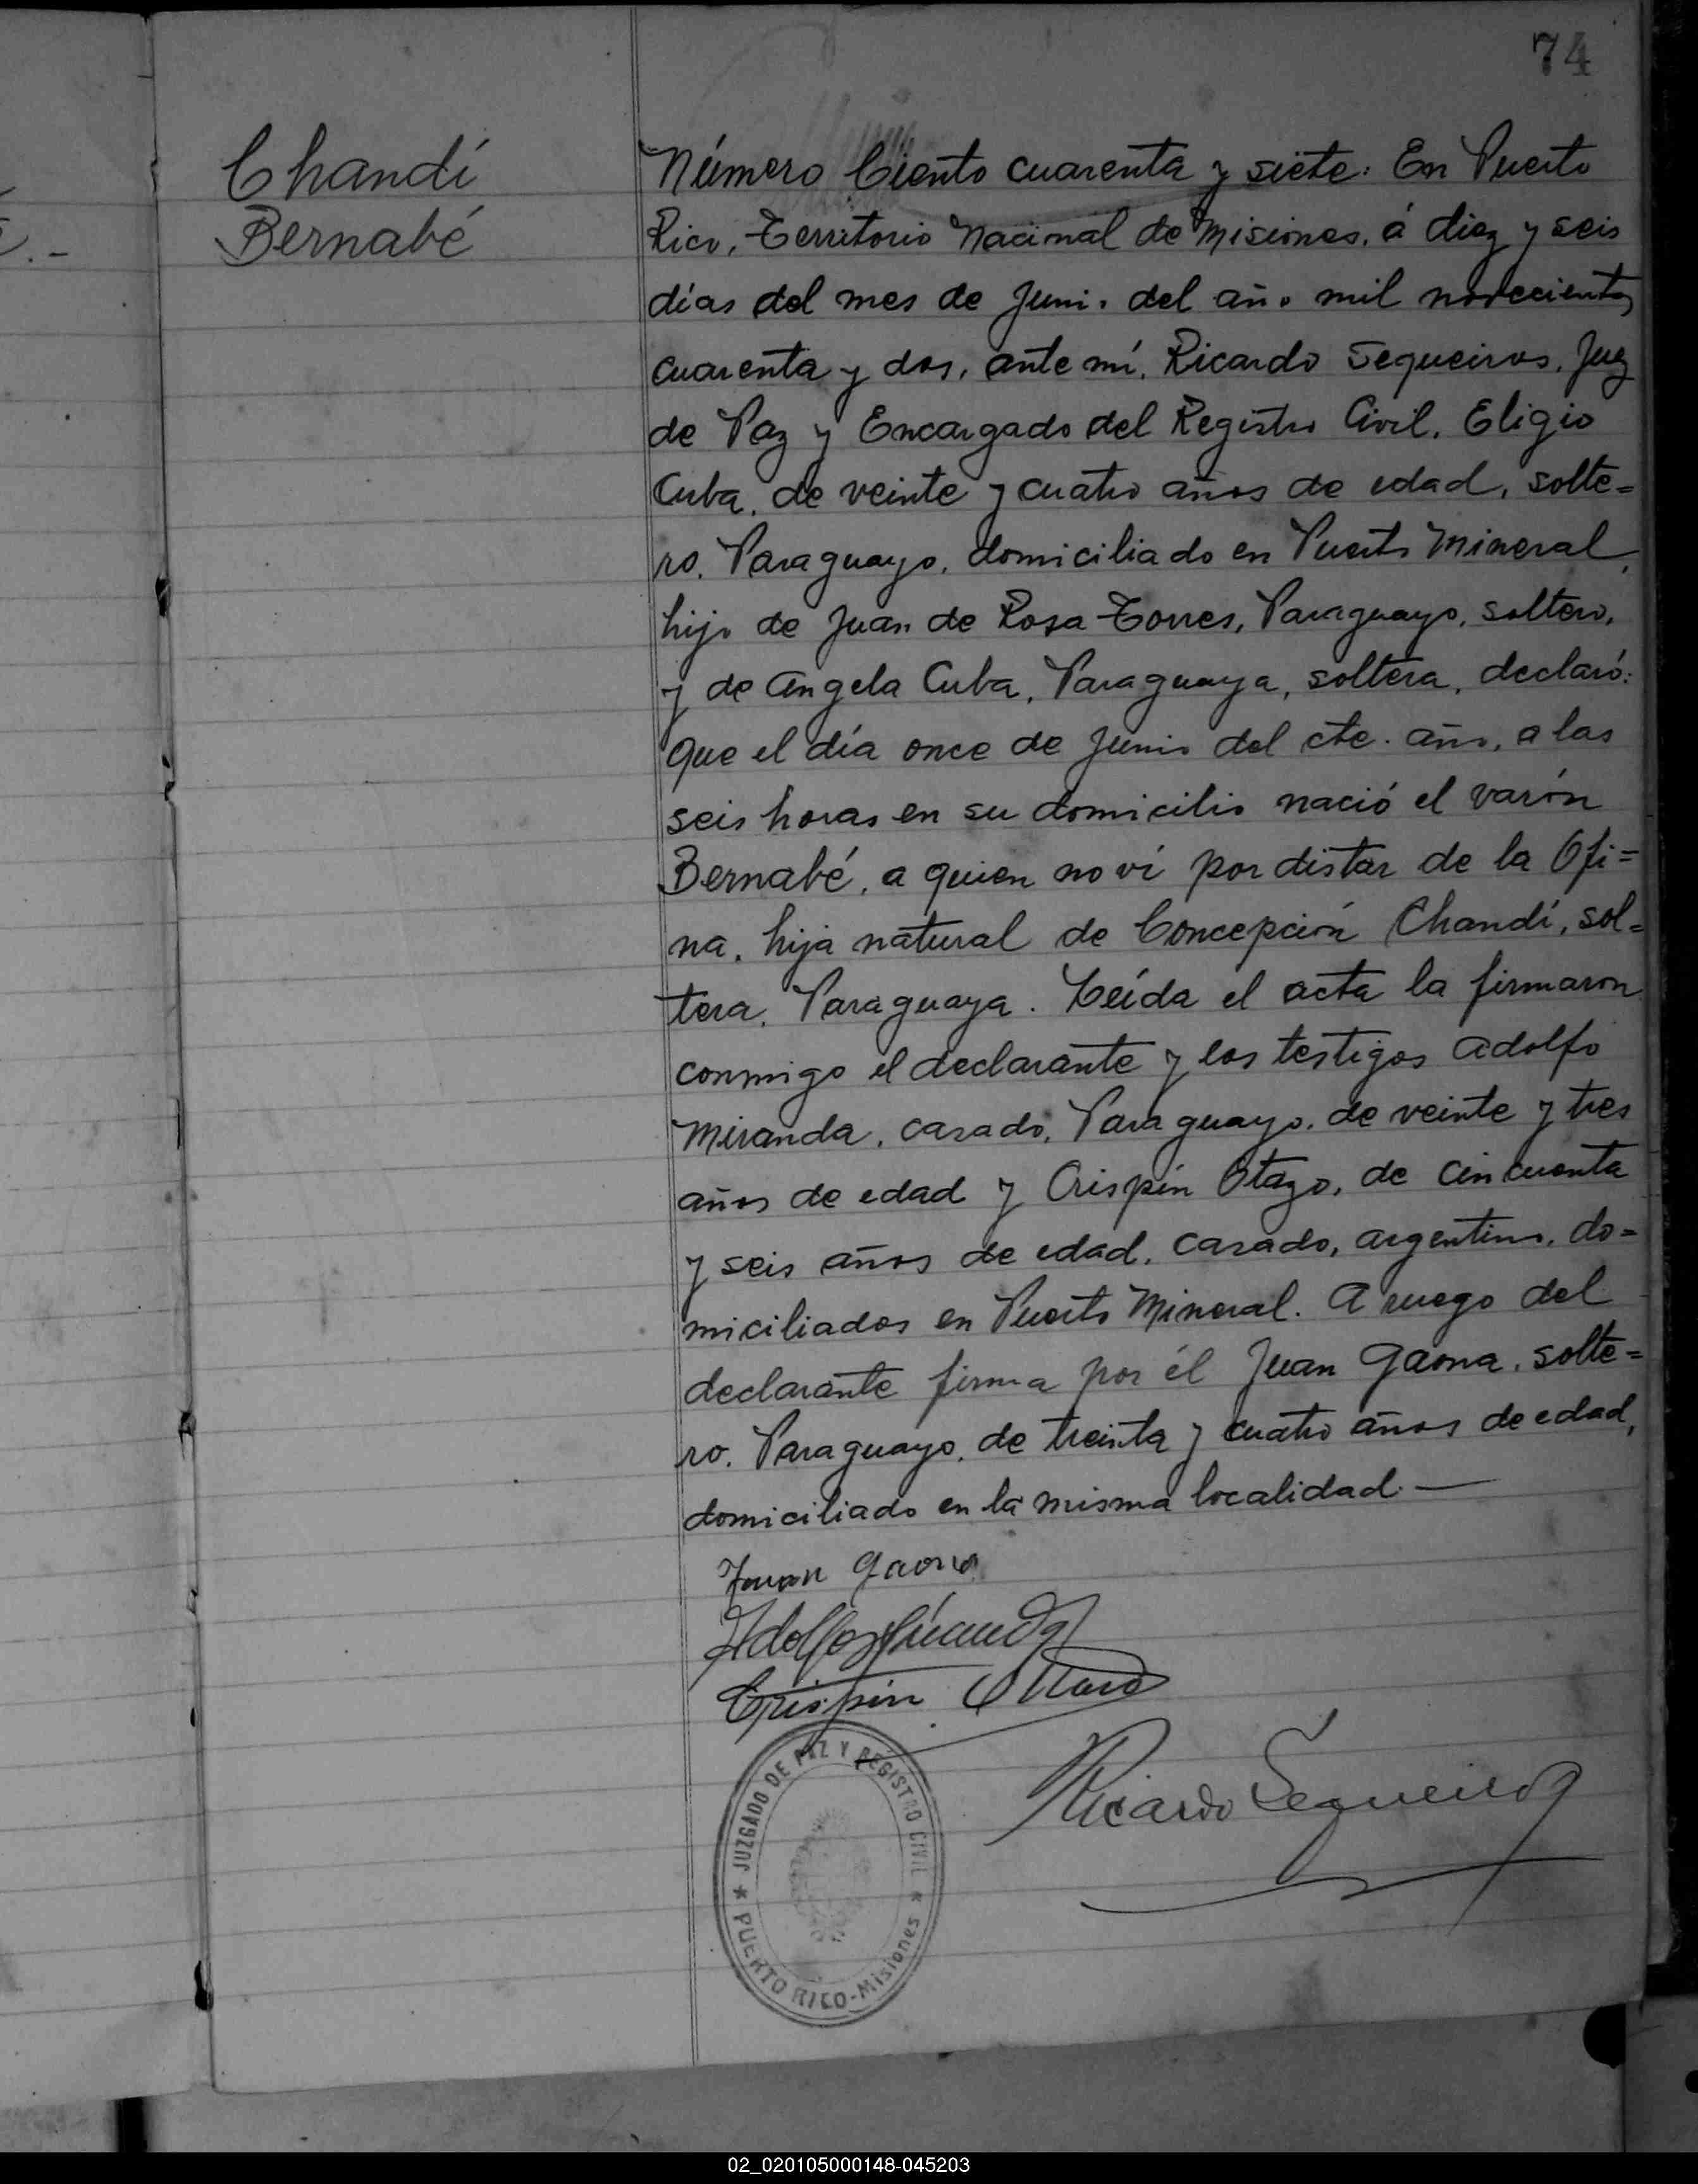 74
Chandí
Bernabé
Número Ciento cuarenta y siete: En Puerto
Rico, Territorio Nacional de Misiones, á diez y seis
días del mes de Junio del año mil novecientos
cuarenta y dos, ante mí, Ricardo Sequeiros, Juez
de Paz y Encargado del Registro Civil, Eligio
Cuba, de veinte y cuatro años de edad, solte=
ro, Paraguayo, domiciliado en Puerto Mineral,
hijo de Juan de Rosa Torres, Paraguayo, soltero,
y de Angela Cuba, Paraguaya, soltera, declaró:
Que el día once de Junio del cte. año, a las
seis horas en su domicilio nació el varón
Bernabé, a quien no ví por distar de la Ofi=
na, hija natural de Concepción Chandí, sol=
tera, Paraguaya. Leída el acta la firmaron
conmigo el declarante y los testigos Adolfo
Miranda, casado, Paraguayo, de veinte y tres
años de edad y Crispín Otazo, de cincuenta
y seis años de edad, casado, argentino, do=
miciliados en Puerto Mineral. A ruego del
declarante firma por él Juan Gaona, solte=
ro, Paraguayo, de treinta y cuatro años de edad,
domiciliado en la misma localidad.—
Juan Gaona
Adolfo Miranda
Crispin
Ricardo Sequeiros
JUZGADO DE PAZ Y REGISTRO CIVIL
★ PUERTO RICO-Misiones ★
02_020105000148-045203